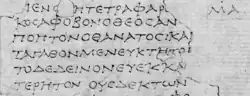 ΜΕΝΟΗΤΕΤΡΑΦΑΡ
ΚΟΣΑΦΟΒΟΝΟΘΕΟΣΑΝ
ΠΟΗΤΟΝΟΘΑΝΑΤΟΣΚΑΙ
ΤΑΓΑΘΟΝΜΕΝΕΥΚΤΗΤΟ
ΤΟΔΕΔΕΙΝΟΝΕΥΕΚΚΑ
ΤΕΡΗΤΟΝ ΟΥΔΕΚΤΩΝ